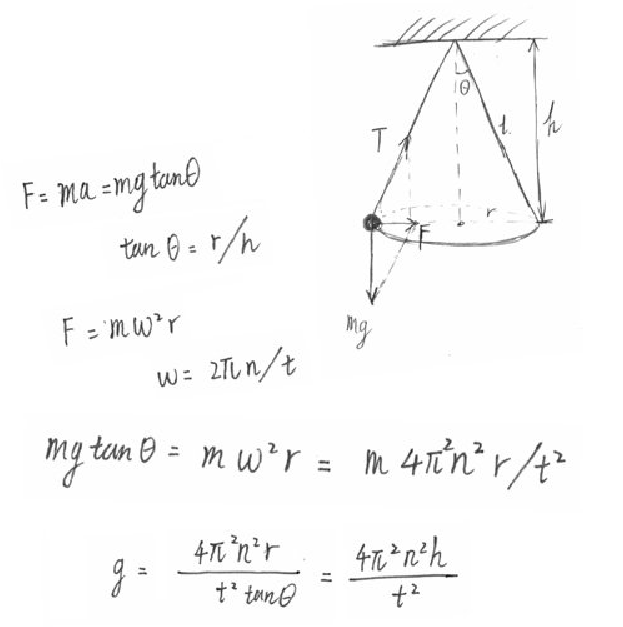 θ
T
l
h
r
F
mg
F = ma = mg tanθ
tan θ = r/h
F = mω²r
ω = 2πn/t
mg tan θ = m ω² r = m 4π²n² r/t²
g = 4π²n²r / t² tanθ = 4π²n²h / t²